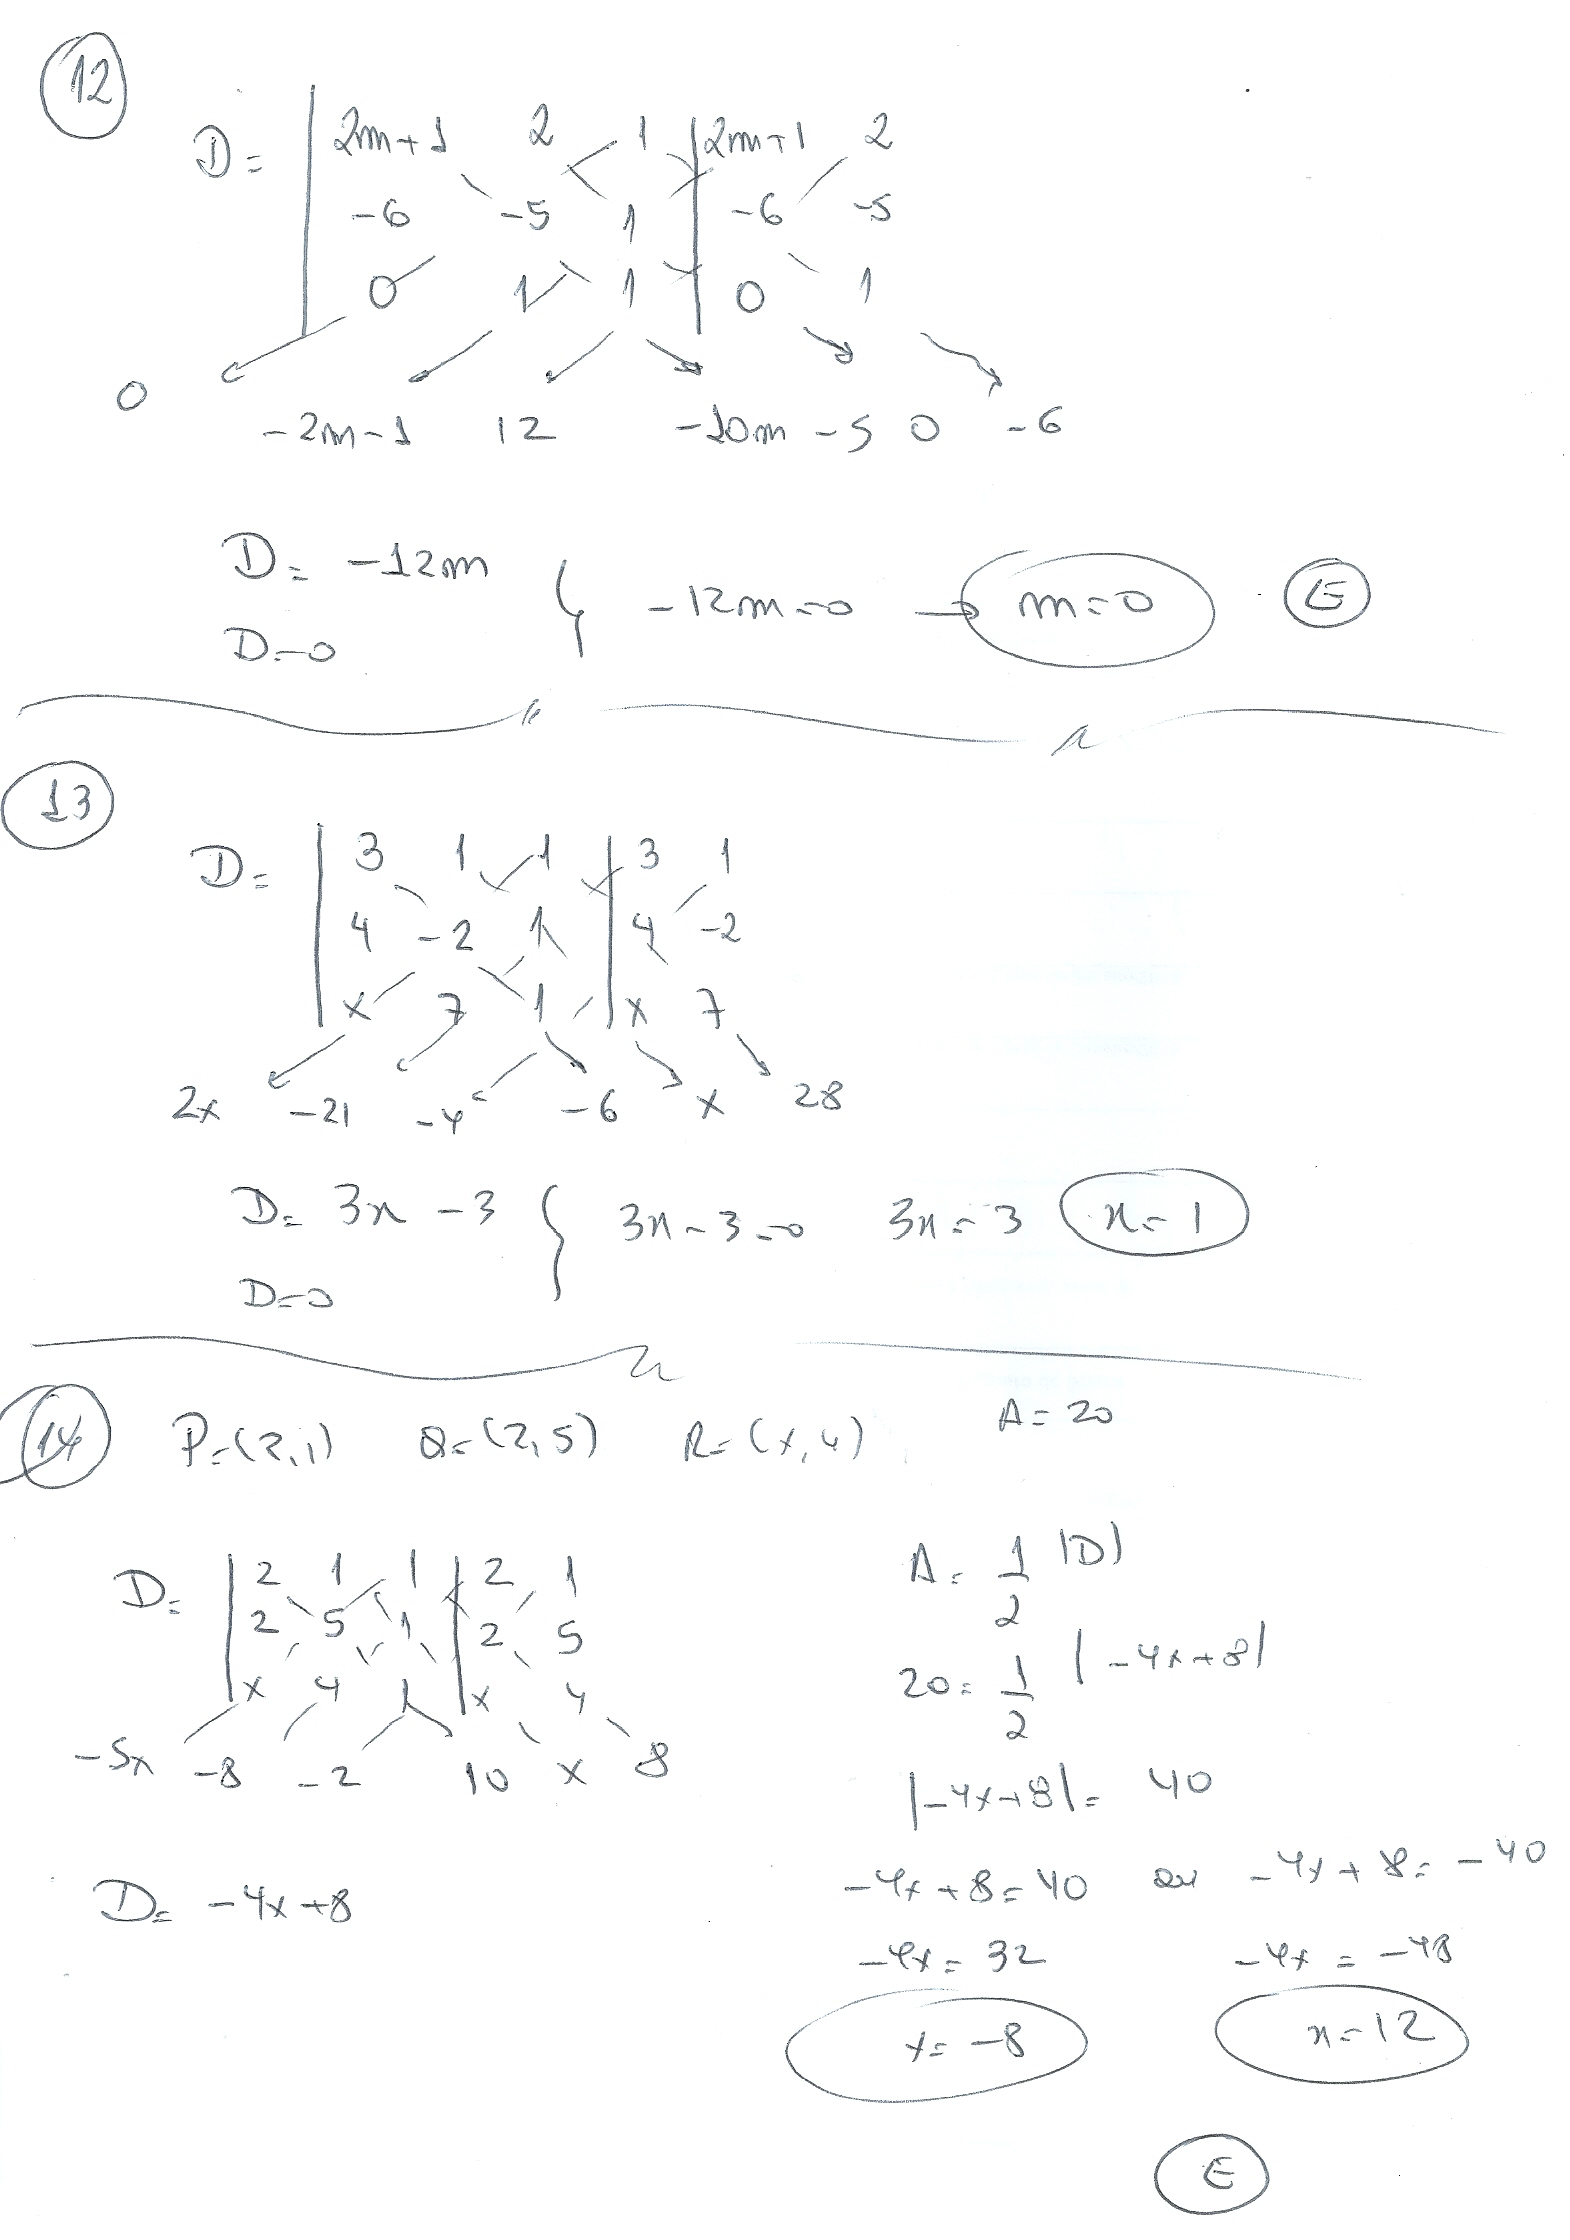 12
D= | 2m+1 2 1 | 2m+1 2
-6 -5 1 | -6 -5
0 1 1 | 0 1
0 -2m-1 12 -10m -5 0 -6
D= -12m
D=0
-12m=0 → m=0
E
13
D= | 3 1 1 | 3 1
4 -2 1 | 4 -2
x 7 1 | x 7
2x -21 -4 -6 x 28
D= 3x -3
D=0
3x-3=0 3x=3 x=1
14 P=(2,1) Q=(2,5) R=(x,4) A=20
D= | 2 1 1 | 2 1
2 5 1 | 2 5
x 4 1 | x 4
-5x -8 -2 10 x 8
D= -4x+8
A= 1/2 |D|
20= 1/2 |-4x+8|
|-4x+8|= 40
-4x+8=40 ou -4x+8=-40
-4x=32 -4x=-48
x=-8 x=12
E